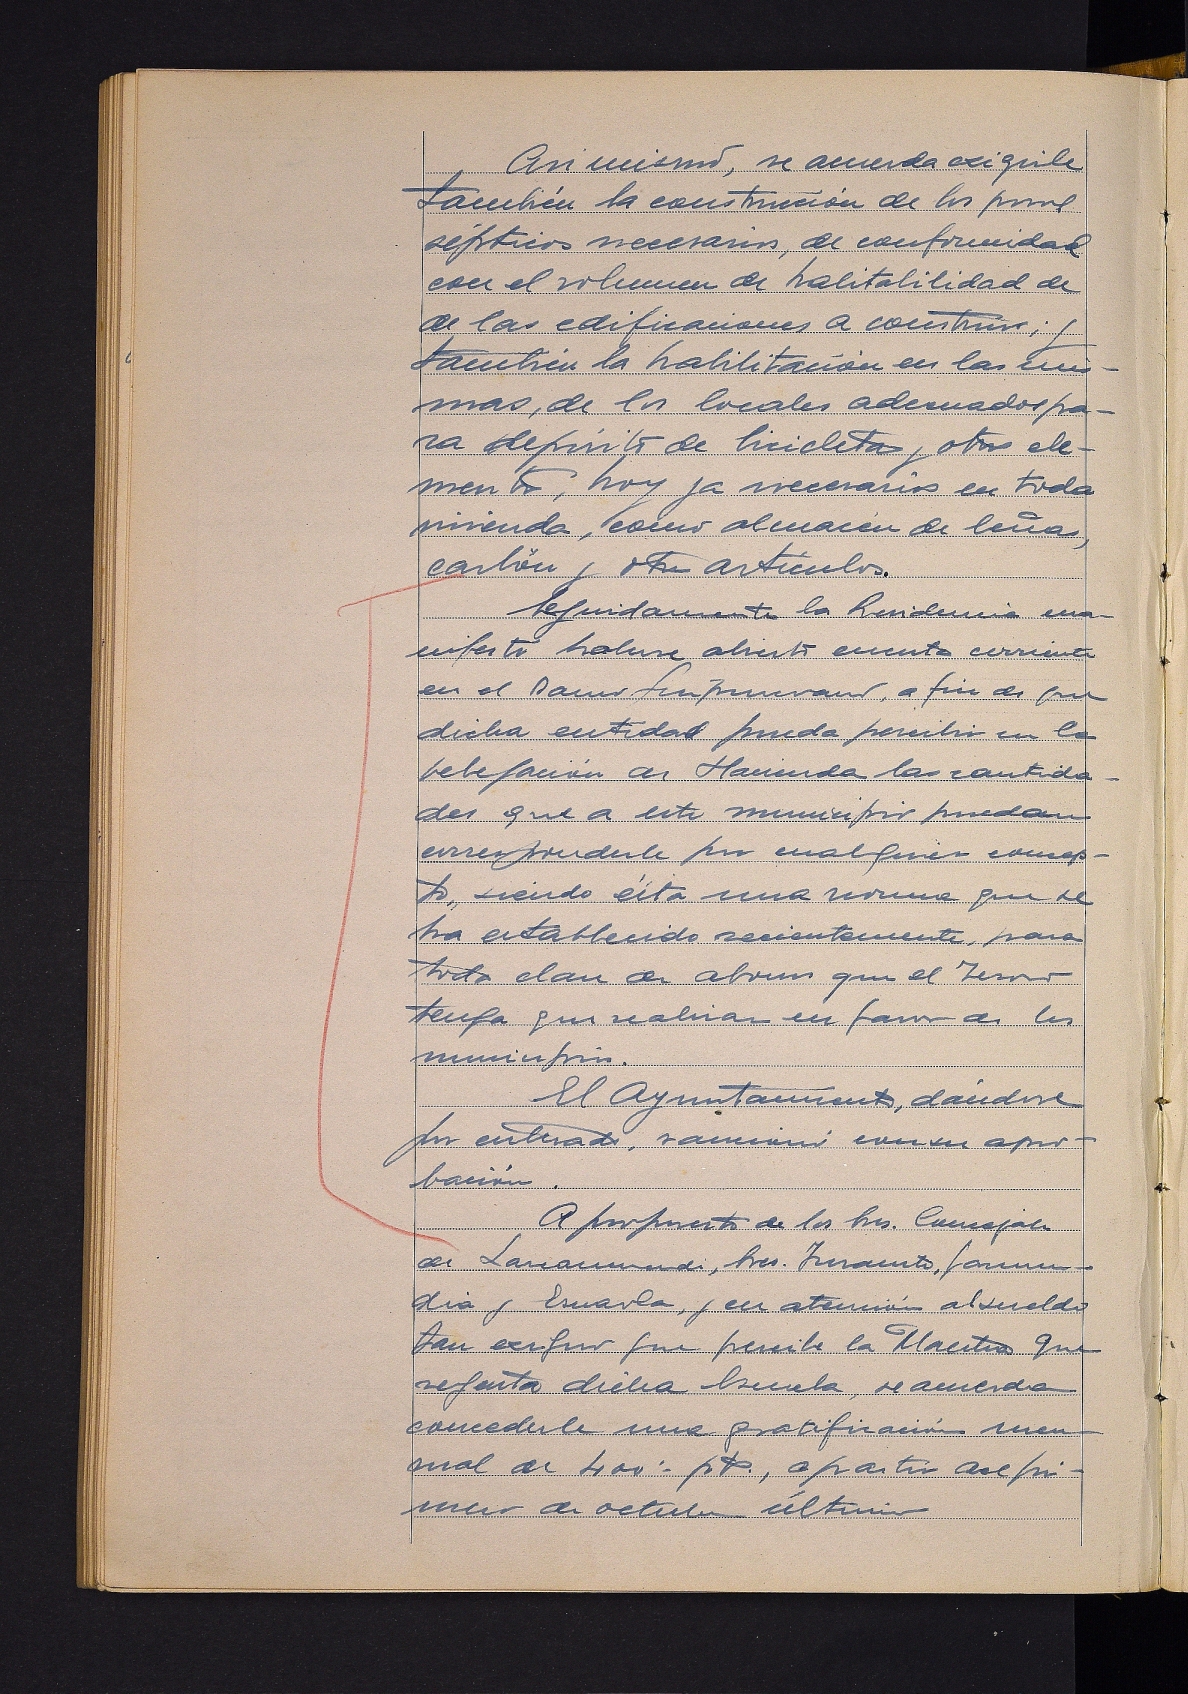 Asi mismo, se acuerda exigirle
también la construcción de los pozos
sépticos necesarios, de conformidad
con el volumen de habitabilidad de
de las edificaciones a construir; y
también la habilitación en las mis-
mas, de los locales adecuados pa-
ra depósito de bicicletas y otros ele-
mentos, hoy ya necesarios en toda
vivienda, como almacén de leñas,
carbón y otros artículos.
Seguidamente la Presidencia ma-
nifestó haberse abierto cuenta corriente
en el Banco Guipuzcoano, a fin de que
dicha entidad pueda percibir en la
Delegación de Hacienda las cantida-
des que a este municipio puedan
corresponderle por cualquier concep-
to, siendo ésta una norma que se
ha establecido recientemente, para
toda clase de abonos que el Tesoro
tenga que realizar en favor de los
municipios.
El Ayuntamiento, dándose
por enterado, sancionó con su apro-
bación.
A propuesta de los Sres. Concejales
de Lascaumendi, Sres.
dia y y en atención al sueldo
tan exiguo que percibe la Maestra que
regenta dicha Escuela, se acuerda
concederle una gratificación men-
sual de 400.- pts., a partir del pri-
mero de octubre último